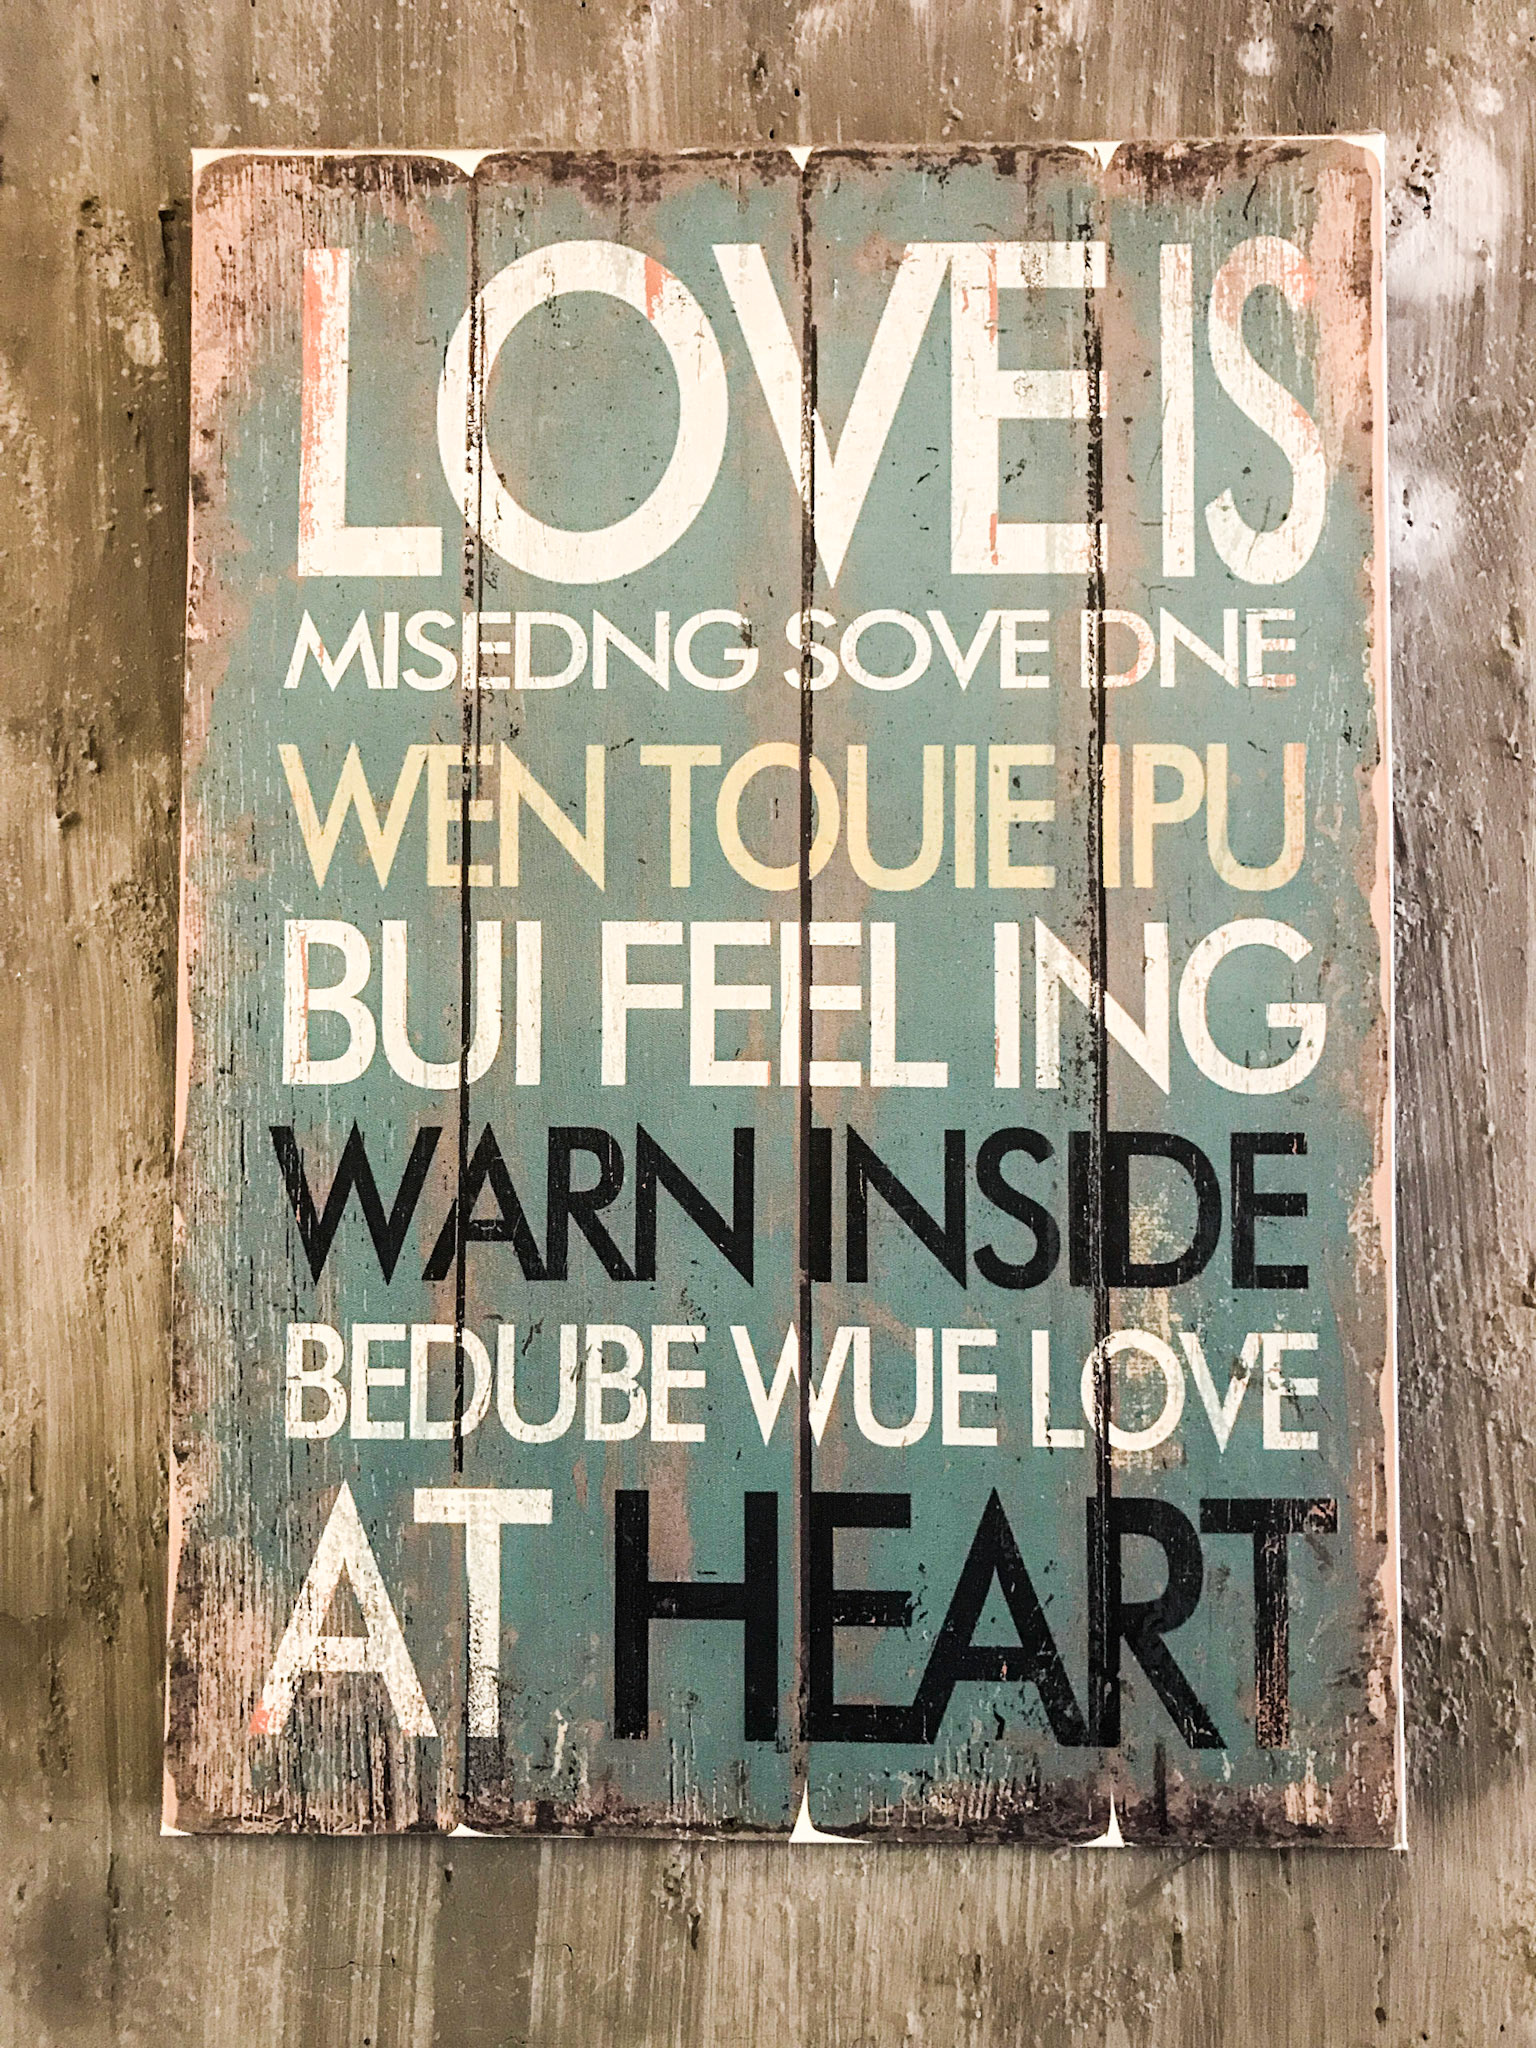 LOVE IS
MISEDNG SOVE DNE
WEN TOUIE IPU
BUI FEEL ING
WARN INSIDE
BEDUBE WUE LOVE
AT HEART